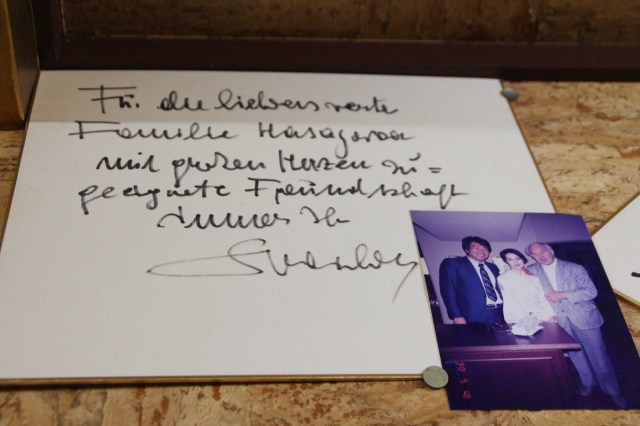 Für die liebenswerte
Familie Hasagawa
mit großen Herzen zu=
geeignete Freundschaft
immer Ihr